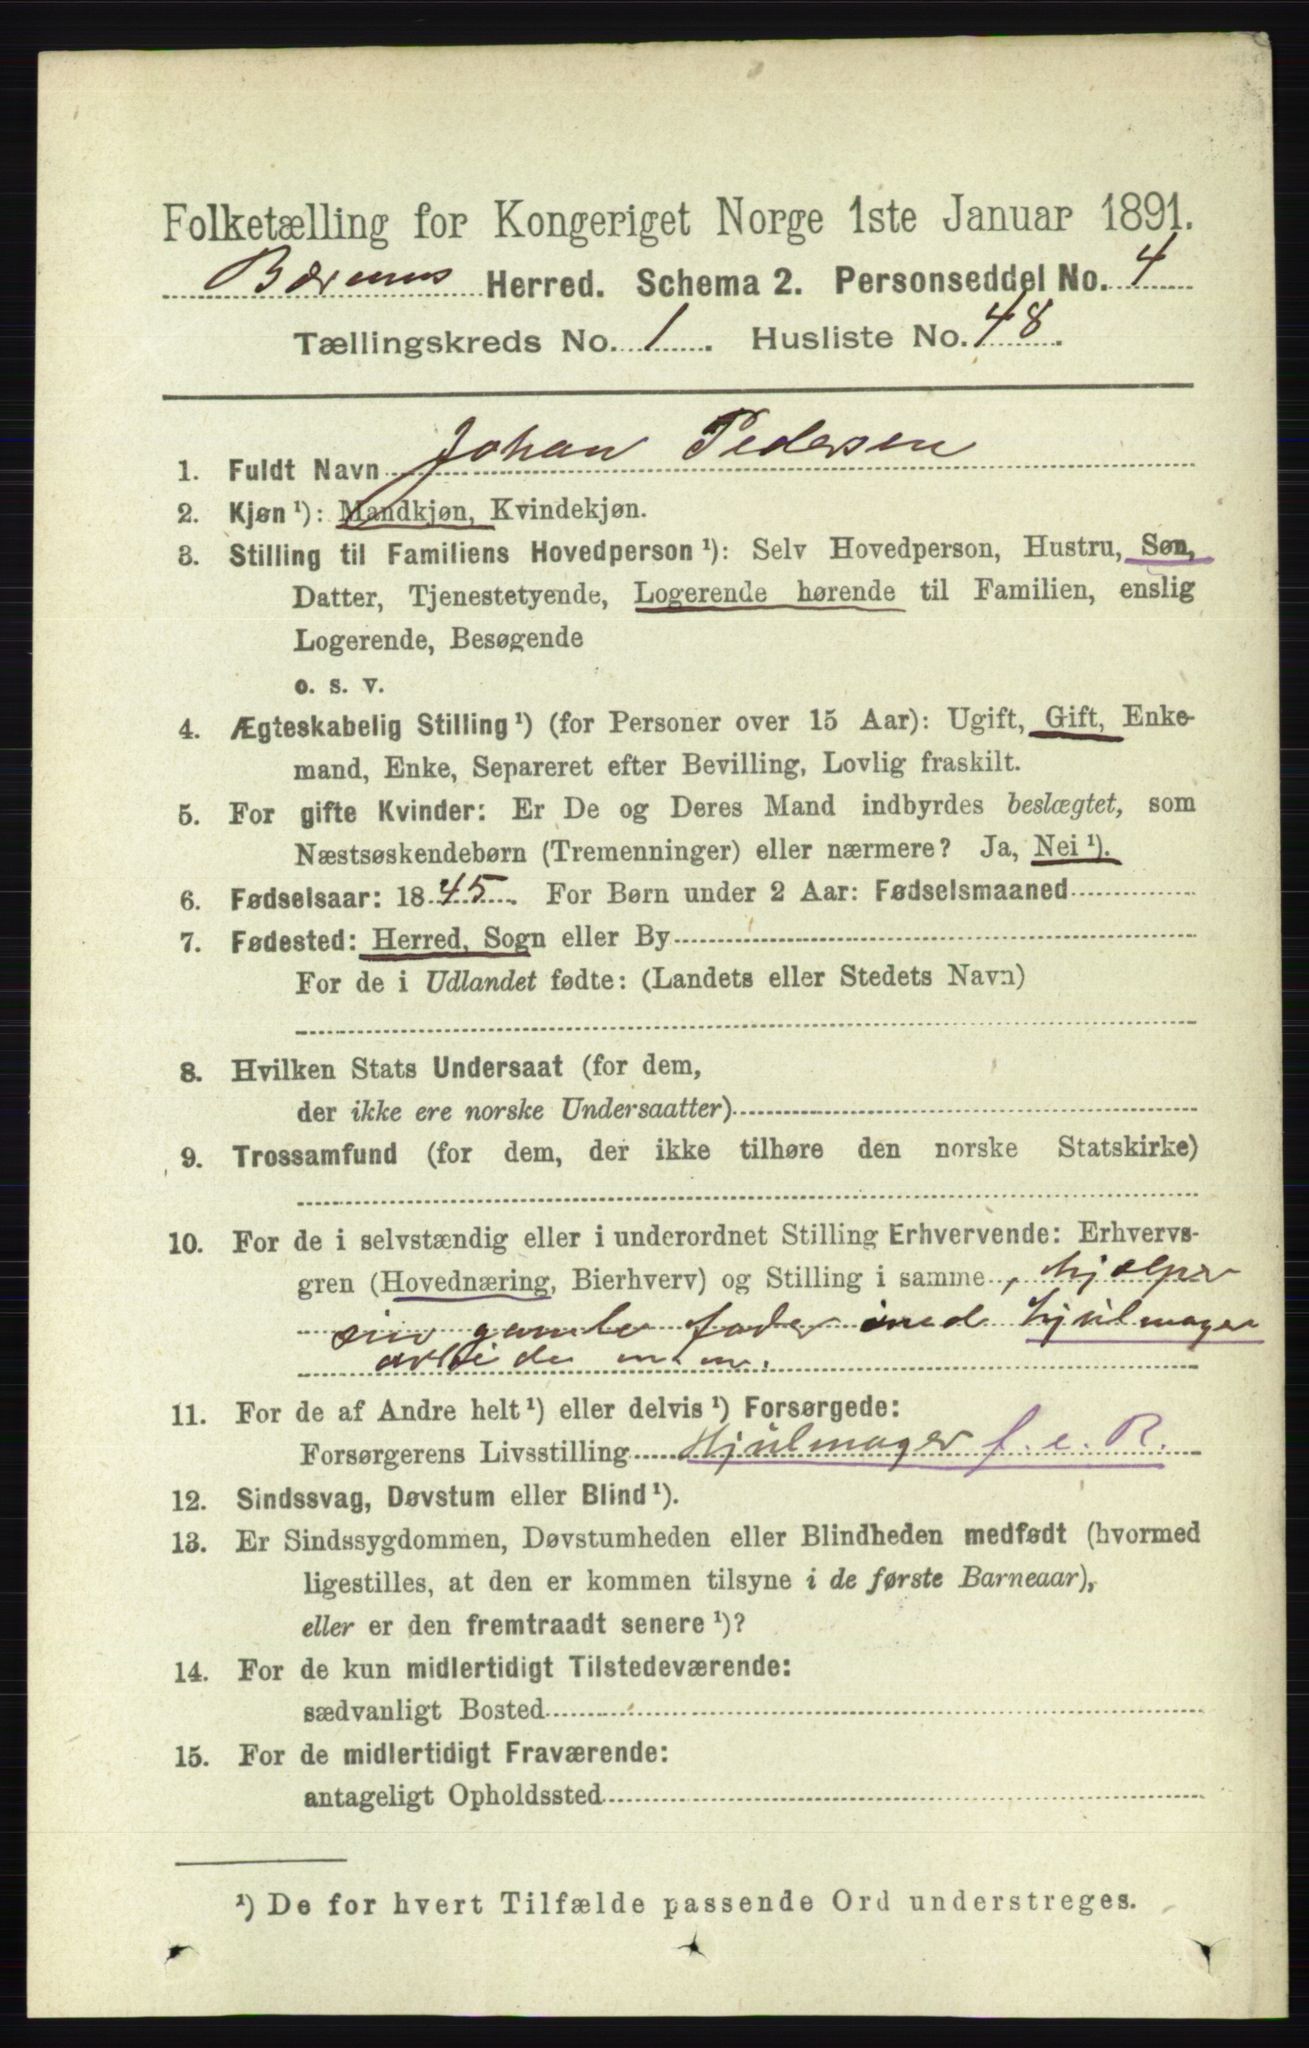 Folketælling for Kongeriget Norge 1ste Januar 1891.
Bærums Herred. Schema 2. Personseddel No. 4
Tællingskreds No. 1. Husliste No. 48.
1. Fuldt Navn Johan Pedersen
2. Kjøn ¹): Mandkjøn, Kvindekjøn.
3. Stilling til Familiens Hovedperson ¹): Selv Hovedperson, Hustru, Søn,
Datter, Tjenestetyende, Logerende hørende til Familien, enslig
Logerende, Besøgende
o. s. v.
4. Ægteskabelig Stilling ¹) (for Personer over 15 Aar): Ugift, Gift, Enke-
mand, Enke, Separeret efter Bevilling, Lovlig fraskilt.
5. For gifte Kvinder: Er De og Deres Mand indbyrdes beslægtet, som
Næstsøskendebørn (Tremenninger) eller nærmere? Ja, Nei ¹).
6. Fødselsaar: 1845. For Børn under 2 Aar: Fødselsmaaned
7. Fødested: Herred, Sogn eller By
For de i Udlandet fødte: (Landets eller Stedets Navn)
8. Hvilken Stats Undersaat (for dem,
der ikke ere norske Undersaatter)
9. Trossamfund (for dem, der ikke tilhøre den norske Statskirke)
10. For de i selvstændig eller i underordnet Stilling Erhvervende: Erhvervs-
gren (Hovednæring, Bierhverv) og Stilling i samme, hjælper
sin gamle fader med hjulmager
arbeide m. m.
11. For de af Andre helt ¹) eller delvis ¹) Forsørgede:
Forsørgerens Livsstilling Hjulmager f. e. R.
12. Sindssvag, Døvstum eller Blind ¹).
13. Er Sindssygdommen, Døvstumheden eller Blindheden medfødt (hvormed
ligestilles, at den er kommen tilsyne i de første Barneaar),
eller er den fremtraadt senere ¹)?
14. For de kun midlertidigt Tilstedeværende:
sædvanligt Bosted
15. For de midlertidigt Fraværende:
antageligt Opholdssted
¹) De for hvert Tilfælde passende Ord understreges.